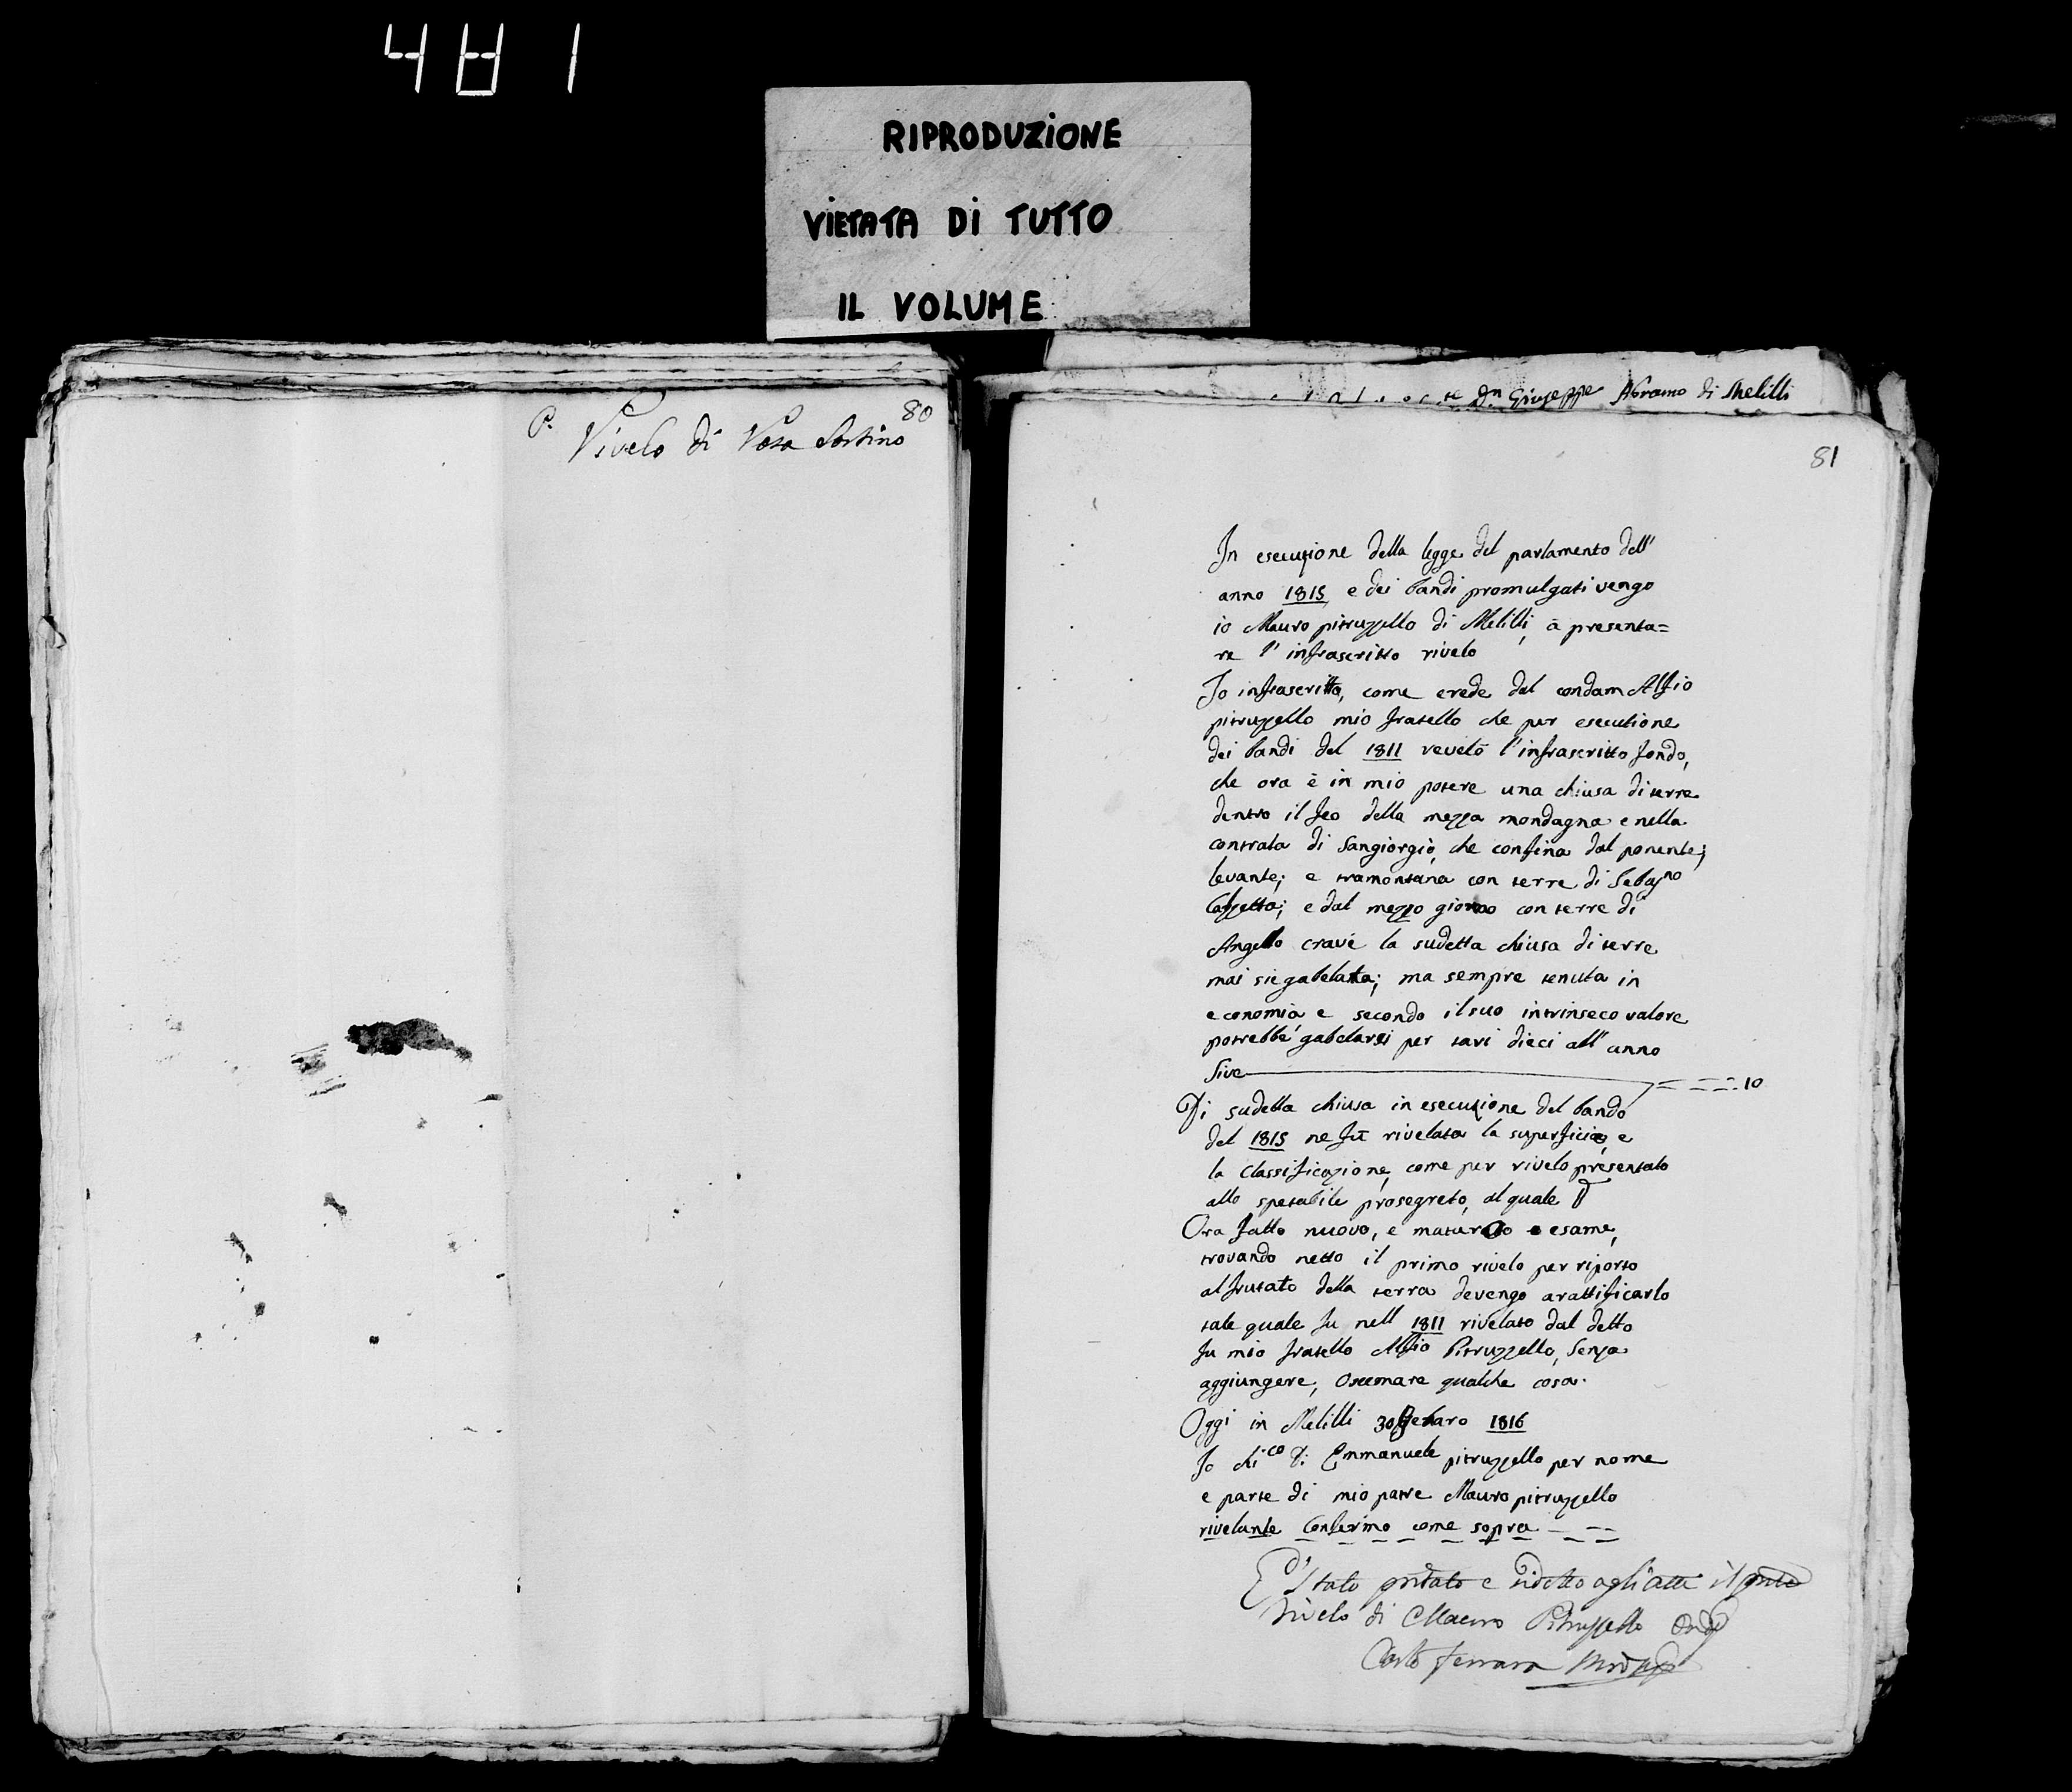 481
RIPRODUZIONE
VIETATA DI TUTTO
IL VOLUME
80
P. Rivelo di Rosa Sortino
Dn Giuseppe Abramo di Melilli
81
In esecuzione della legge del parlamento dell'
anno 1815 e dei bandi promulgati vengo
io Mauro pitruzzello di Melilli, à presenta=
re l'infrascritto rivelo
Io infrascritto, come erede del condam Alfio
pitruzzello mio fratello che per esecutione
dei bandi del 1811 revelò l'infrascritto fondo,
che ora è in mio potere una chiusa di terre
dentro il feo della mezza mondagna e nella
contrata di Sangiorgiò, che confina dal ponente;
levante; e tramontana con terre di Sebasno
Cazzetta; e dal mezzo giorno con terre di
Angello cravè la sudetta chiusa di terre
mai si è gabelata; ma sempre tenuta in
economia e secondo il suo intrinseco valore
potrebbe gabelarsi per tari dieci all'anno
Sive 10
Di sudetta chiusa in esecuzione del bando
del 1815 ne fù rivelata la superficie, e
la Classificazione, come per rivelo presentato
allo spetabile prosegreto, al quale
Ora fatto nuovo, e maturato esame,
trovando netto il primo rivelo per riporto
al frutato della terra devengo arattificarlo
tale quale fu nell 1811 rivelato dal detto
fu mio fratello Alfio Pitruzzello, Senza
aggiungere, O scemare qualche cosa.
Oggi in Melilli 30 Genaro 1816
Io chico D: Emmanuele pitruzzello per nome
e parte di mio patre Mauro pitruzzello
rivelante Confermo come sopra
E' stato pntato e ridotto agli atti il pnte
rivelo di Mauro Pitruzzello
Carlo Ferrara